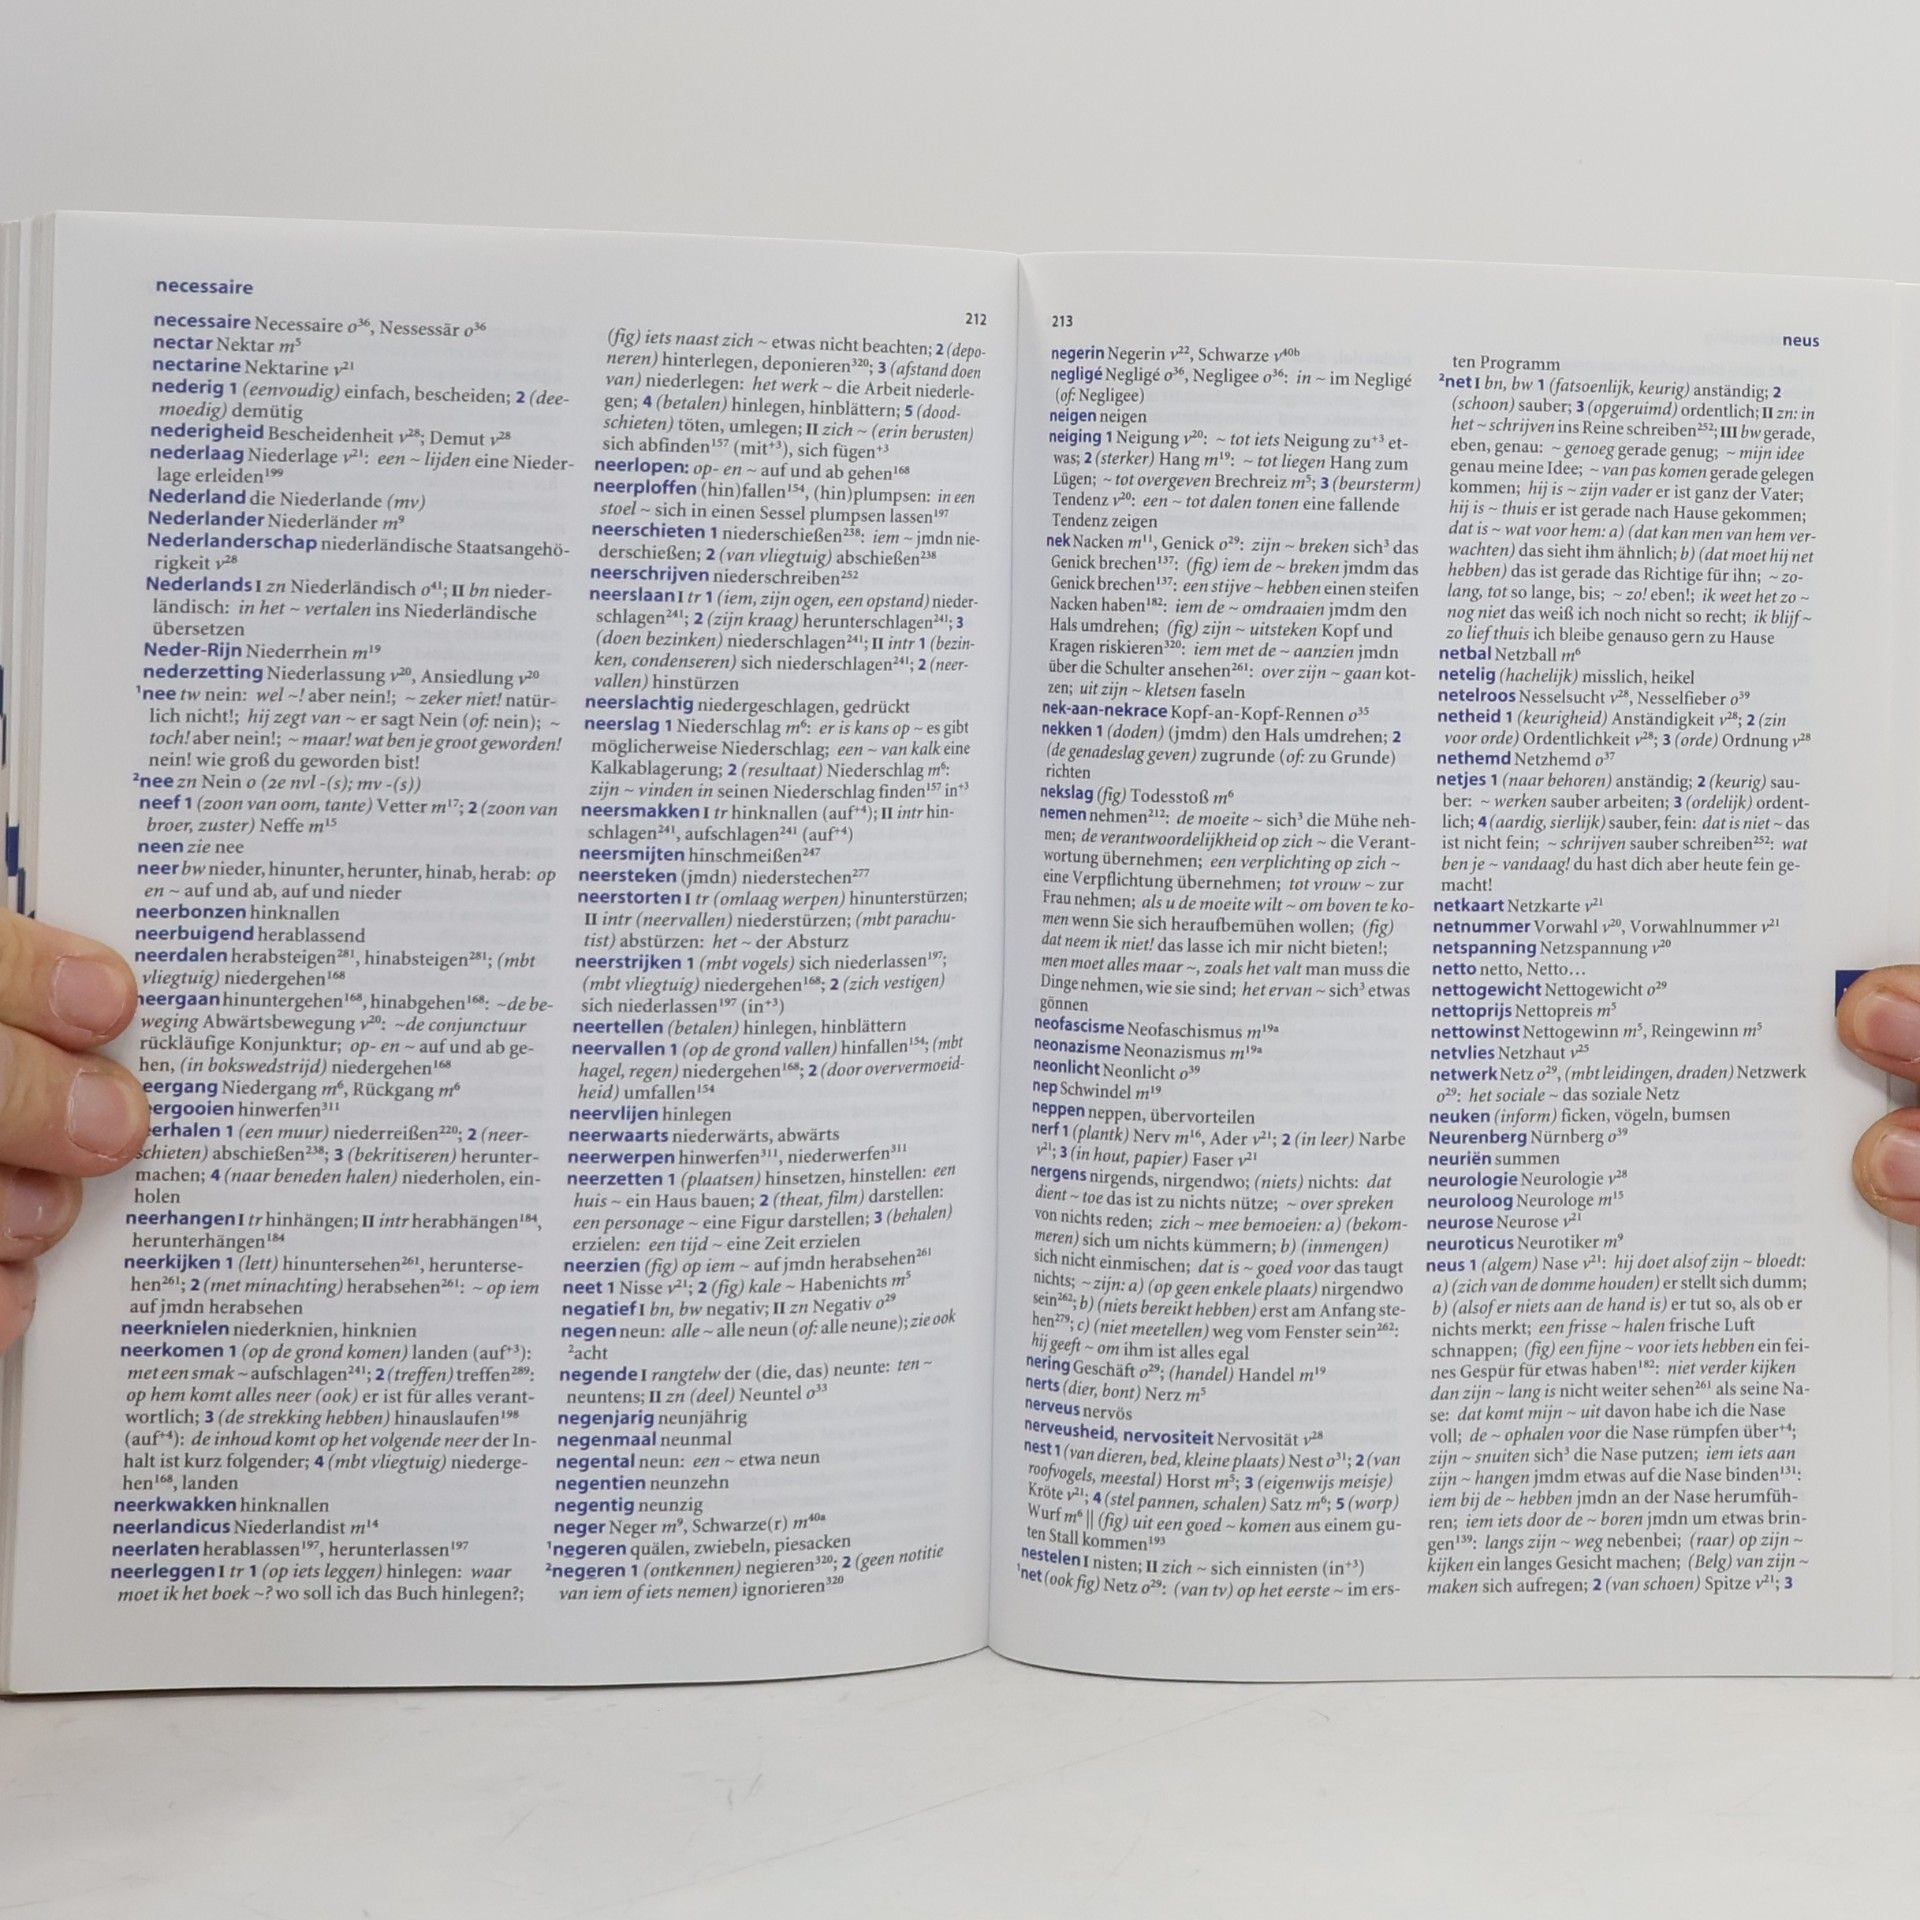 necessaire
212
necessaire Necessaire o³⁶, Nessessär o³⁶
nectar Nektar m⁵
nectarine Nektarine v²¹
nederig 1 (eenvoudig) einfach, bescheiden; 2 (dee-
moedig) demütig
nederigheid Bescheidenheit v²⁸; Demut v²⁸
nederlaag Niederlage v²¹: een ~ lijden eine Nieder-
lage erleiden¹⁹⁹
Nederland die Niederlande (mv)
Nederlander Niederländer m⁹
Nederlanderschap niederländische Staatsangehö-
rigkeit v²⁸
Nederlands I zn Niederländisch o⁴¹; II bn nieder-
ländisch: in het ~ vertalen ins Niederländische
übersetzen
Neder-Rijn Niederrhein m¹⁹
nederzetting Niederlassung v²⁰, Ansiedlung v²⁰
¹nee tw nein: wel ~! aber nein!; ~ zeker niet! natür-
lich nicht!; hij zegt van ~ er sagt Nein (of: nein); ~
toch! aber nein!; ~ maar! wat ben je groot geworden!
nein! wie groß du geworden bist!
²nee zn Nein o (2e nvl -(s); mv -(s))
neef 1 (zoon van oom, tante) Vetter m¹⁷; 2 (zoon van
broer, zuster) Neffe m¹⁵
neen zie nee
neer bw nieder, hinunter, herunter, hinab, herab: op
en ~ auf und ab, auf und nieder
neerbonzen hinknallen
neerbuigend herablassend
neerdalen herabsteigen²⁸¹, hinabsteigen²⁸¹; (mbt
vliegtuig) niedergehen¹⁶⁸
neergaan hinuntergehen¹⁶⁸, hinabgehen¹⁶⁸: ~de be-
weging Abwärtsbewegung v²⁰: ~de conjunctuur
rückläufige Konjunktur; op- en ~ auf und ab ge-
hen, (in bokswedstrijd) niedergehen¹⁶⁸
eergang Niedergang m⁶, Rückgang m⁶
eergooien hinwerfen³¹¹
eerhalen 1 (een muur) niederreißen²²⁰; 2 (neer-
schieten) abschießen²³⁸; 3 (bekritiseren) herunter-
machen; 4 (naar beneden halen) niederholen, ein-
holen
neerhangen I tr hinhängen; II intr herabhängen¹⁸⁴,
herunterhängen¹⁸⁴
neerkijken 1 (lett) hinuntersehen²⁶¹, herunterse-
hen²⁶¹; 2 (met minachting) herabsehen²⁶¹: ~ op iem
auf jmdn herabsehen
neerknielen niederknien, hinknien
neerkomen 1 (op de grond komen) landen (auf⁺³):
met een smak ~ aufschlagen²⁴¹; 2 (treffen) treffen²⁸⁹:
op hem komt alles neer (ook) er ist für alles verant-
wortlich; 3 (de strekking hebben) hinauslaufen¹⁹⁸
(auf⁺⁴): de inhoud komt op het volgende neer der In-
halt ist kurz folgender; 4 (mbt vliegtuig) niederge-
hen¹⁶⁸, landen
neerkwakken hinknallen
neerlandicus Niederlandist m¹⁴
neerlaten herablassen¹⁹⁷, herunterlassen¹⁹⁷
neerleggen I tr 1 (op iets leggen) hinlegen: waar
moet ik het boek ~? wo soll ich das Buch hinlegen?;
(fig) iets naast zich ~ etwas nicht beachten; 2 (depo-
neren) hinterlegen, deponieren³²⁰; 3 (afstand doen
van) niederlegen: het werk ~ die Arbeit niederle-
gen; 4 (betalen) hinlegen, hinblättern; 5 (dood-
schieten) töten, umlegen; II zich ~ (erin berusten)
sich abfinden¹⁵⁷ (mit⁺³), sich fügen⁺³
neerlopen: op- en ~ auf und ab gehen¹⁶⁸
neerploffen (hin)fallen¹⁵⁴, (hin)plumpsen: in een
stoel ~ sich in einen Sessel plumpsen lassen¹⁹⁷
neerschieten 1 niederschießen²³⁸: iem ~ jmdn nie-
derschießen; 2 (van vliegtuig) abschießen²³⁸
neerschrijven niederschreiben²⁵²
neerslaan I tr 1 (iem, zijn ogen, een opstand) nieder-
schlagen²⁴¹; 2 (zijn kraag) herunterschlagen²⁴¹; 3
(doen bezinken) niederschlagen²⁴¹; II intr 1 (bezin-
ken, condenseren) sich niederschlagen²⁴¹; 2 (neer-
vallen) hinstürzen
neerslachtig niedergeschlagen, gedrückt
neerslag 1 Niederschlag m⁶: er is kans op ~ es gibt
möglicherweise Niederschlag; een ~ van kalk eine
Kalkablagerung; 2 (resultaat) Niederschlag m⁶:
zijn ~ vinden in seinen Niederschlag finden¹⁵⁷ in⁺³
neersmakken I tr hinknallen (auf⁺⁴); II intr hin-
schlagen²⁴¹, aufschlagen²⁴¹ (auf⁺⁴)
neersmijten hinschmeißen²⁴⁷
neersteken (jmdn) niederstechen²⁷⁷
neerstorten I tr (omlaag werpen) hinunterstürzen;
II intr (neervallen) niederstürzen; (mbt parachu-
tist) abstürzen: het ~ der Absturz
neerstrijken 1 (mbt vogels) sich niederlassen¹⁹⁷;
(mbt vliegtuig) niedergehen¹⁶⁸; 2 (zich vestigen)
sich niederlassen¹⁹⁷ (in⁺³)
neertellen (betalen) hinlegen, hinblättern
neervallen 1 (op de grond vallen) hinfallen¹⁵⁴; (mbt
hagel, regen) niedergehen¹⁶⁸; 2 (door oververmoeid-
heid) umfallen¹⁵⁴
neervlijen hinlegen
neerwaarts niederwärts, abwärts
neerwerpen hinwerfen³¹¹, niederwerfen³¹¹
neerzetten 1 (plaatsen) hinsetzen, hinstellen: een
huis ~ ein Haus bauen; 2 (theat, film) darstellen:
een personage ~ eine Figur darstellen; 3 (behalen)
erzielen: een tijd ~ eine Zeit erzielen
neerzien (fig) op iem ~ auf jmdn herabsehen²⁶¹
neet 1 Nisse v²¹; 2 (fig) kale ~ Habenichts m⁵
negatief I bn, bw negativ; II zn Negativ o²⁹
negen neun: alle ~ alle neun (of: alle neune); zie ook
²acht
negende I rangtelw der (die, das) neunte: ten ~
neuntens; II zn (deel) Neuntel o³³
negenjarig neunjährig
negenmaal neunmal
negental neun: een ~ etwa neun
negentien neunzehn
negentig neunzig
neger Neger m⁹, Schwarze(r) m⁴⁰ᵃ
¹negeren quälen, zwiebeln, piesacken
²negeren 1 (ontkennen) negieren³²⁰; 2 (geen notitie
van iem of iets nemen) ignorieren³²⁰
213
neus
negerin Negerin v²², Schwarze v⁴⁰ᵇ
negligé Negligé o³⁶, Negligee o³⁶: in ~ im Negligé
(of: Negligee)
neigen neigen
neiging 1 Neigung v²⁰: ~ tot iets Neigung zu⁺³ et-
was; 2 (sterker) Hang m¹⁹: ~ tot liegen Hang zum
Lügen; ~ tot overgeven Brechreiz m⁵; 3 (beursterm)
Tendenz v²⁰: een ~ tot dalen tonen eine fallende
Tendenz zeigen
nek Nacken m¹¹, Genick o²⁹: zijn ~ breken sich³ das
Genick brechen¹³⁷: (fig) iem de ~ breken jmdm das
Genick brechen¹³⁷: een stijve ~ hebben einen steifen
Nacken haben¹⁸²: iem de ~ omdraaien jmdm den
Hals umdrehen; (fig) zijn ~ uitsteken Kopf und
Kragen riskieren³²⁰: iem met de ~ aanzien jmdn
über die Schulter ansehen²⁶¹: over zijn ~ gaan kot-
zen; uit zijn ~ kletsen faseln
nek-aan-nekrace Kopf-an-Kopf-Rennen o³⁵
nekken 1 (doden) (jmdm) den Hals umdrehen; 2
(de genadeslag geven) zugrunde (of: zu Grunde)
richten
nekslag (fig) Todesstoß m⁶
nemen nehmen²¹²: de moeite ~ sich³ die Mühe neh-
men; de verantwoordelijkheid op zich ~ die Verant-
wortung übernehmen; een verplichting op zich ~
eine Verpflichtung übernehmen; tot vrouw ~ zur
Frau nehmen; als u de moeite wilt ~ om boven te ko-
men wenn Sie sich heraufbemühen wollen; (fig)
dat neem ik niet! das lasse ich mir nicht bieten!;
men moet alles maar ~, zoals het valt man muss die
Dinge nehmen, wie sie sind; het ervan ~ sich³ etwas
gönnen
neofascisme Neofaschismus m¹⁹ᵃ
neonazisme Neonazismus m¹⁹ᵃ
neonlicht Neonlicht o³⁹
nep Schwindel m¹⁹
neppen neppen, übervorteilen
nerf 1 (plantk) Nerv m¹⁶, Ader v²¹; 2 (in leer) Narbe
v²¹; 3 (in hout, papier) Faser v²¹
nergens nirgends, nirgendwo; (niets) nichts: dat
dient ~ toe das ist zu nichts nütze; ~ over spreken
von nichts reden; zich ~ mee bemoeien: a) (bekom-
meren) sich um nichts kümmern; b) (inmengen)
sich nicht einmischen; dat is ~ goed voor das taugt
nichts; ~ zijn: a) (op geen enkele plaats) nirgendwo
sein²⁶²; b) (niets bereikt hebben) erst am Anfang ste-
hen²⁷⁹; c) (niet meetellen) weg vom Fenster sein²⁶²:
hij geeft ~ om ihm ist alles egal
nering Geschäft o²⁹; (handel) Handel m¹⁹
nerts (dier, bont) Nerz m⁵
nerveus nervös
nerveusheid, nervositeit Nervosität v²⁸
nest 1 (van dieren, bed, kleine plaats) Nest o³¹; 2 (van
roofvogels, meestal) Horst m⁵; 3 (eigenwijs meisje)
Kröte v²¹; 4 (stel pannen, schalen) Satz m⁶; 5 (worp)
Wurf m⁶ || (fig) uit een goed ~ komen aus einem gu-
ten Stall kommen¹⁹³
nestelen I nisten; II zich ~ sich einnisten (in⁺³)
¹net (ook fig) Netz o²⁹: (van tv) op het eerste ~ im ers-
ten Programm
²net I bn, bw 1 (fatsoenlijk, keurig) anständig; 2
(schoon) sauber; 3 (opgeruimd) ordentlich; II zn: in
het ~ schrijven ins Reine schreiben²⁵²; III bw gerade,
eben, genau: ~ genoeg gerade genug; ~ mijn idee
genau meine Idee; ~ van pas komen gerade gelegen
kommen; hij is ~ zijn vader er ist ganz der Vater;
hij is ~ thuis er ist gerade nach Hause gekommen;
dat is ~ wat voor hem: a) (dat kan men van hem ver-
wachten) das sieht ihm ähnlich; b) (dat moet hij net
hebben) das ist gerade das Richtige für ihn; ~ zo-
lang, tot so lange, bis; ~ zo! eben!; ik weet het zo ~
nog niet das weiß ich noch nicht so recht; ik blijf ~
zo lief thuis ich bleibe genauso gern zu Hause
netbal Netzball m⁶
netelig (hachelijk) misslich, heikel
netelroos Nesselsucht v²⁸, Nesselfieber o³⁹
netheid 1 (keurigheid) Anständigkeit v²⁸; 2 (zin
voor orde) Ordentlichkeit v²⁸; 3 (orde) Ordnung v²⁸
nethemd Netzhemd o³⁷
netjes 1 (naar behoren) anständig; 2 (keurig) sau-
ber: ~ werken sauber arbeiten; 3 (ordelijk) ordent-
lich; 4 (aardig, sierlijk) sauber, fein: dat is niet ~ das
ist nicht fein; ~ schrijven sauber schreiben²⁵²: wat
ben je ~ vandaag! du hast dich aber heute fein ge-
macht!
netkaart Netzkarte v²¹
netnummer Vorwahl v²⁰, Vorwahlnummer v²¹
netspanning Netzspannung v²⁰
netto netto, Netto...
nettogewicht Nettogewicht o²⁹
nettoprijs Nettopreis m⁵
nettowinst Nettogewinn m⁵, Reingewinn m⁵
netvlies Netzhaut v²⁵
netwerk Netz o²⁹, (mbt leidingen, draden) Netzwerk
o²⁹: het sociale ~ das soziale Netz
neuken (inform) ficken, vögeln, bumsen
Neurenberg Nürnberg o³⁹
neuriën summen
neurologie Neurologie v²⁸
neuroloog Neurologe m¹⁵
neurose Neurose v²¹
neuroticus Neurotiker m⁹
neus 1 (algem) Nase v²¹: hij doet alsof zijn ~ bloedt:
a) (zich van de domme houden) er stellt sich dumm;
b) (alsof er niets aan de hand is) er tut so, als ob er
nichts merkt; een frisse ~ halen frische Luft
schnappen; (fig) een fijne ~ voor iets hebben ein fei-
nes Gespür für etwas haben¹⁸²: niet verder kijken
dan zijn ~ lang is nicht weiter sehen²⁶¹ als seine Na-
se: dat komt mijn ~ uit davon habe ich die Nase
voll; de ~ ophalen voor die Nase rümpfen über⁺⁴;
zijn ~ snuiten sich³ die Nase putzen; iem iets aan
zijn ~ hangen jmdm etwas auf die Nase binden¹³¹:
iem bij de ~ hebben jmdn an der Nase herumfüh-
ren; iem iets door de ~ boren jmdn um etwas brin-
gen¹³⁹: langs zijn ~ weg nebenbei; (raar) op zijn ~
kijken ein langes Gesicht machen; (Belg) van zijn ~
maken sich aufregen; 2 (van schoen) Spitze v²¹; 3